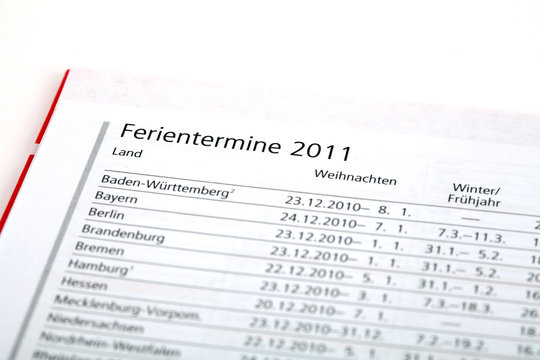 Ferientermine 2011
Land Weihnachten Winter/
Frühjahr
Baden-Württemberg² 23.12.2010– 8. 1. —
Bayern 24.12.2010– 7. 1. 7.3.–11.3.
Berlin 23.12.2010– 1. 1. 31.1.– 5.2.
Brandenburg 23.12.2010– 1. 1. 31.1.– 5.2.
Bremen 22.12.2010– 5. 1. 31.1.– 1.2.
Hamburg¹ 23.12.2010– 3. 1. 7.3.–18.3.
Hessen 20.12.2010– 7. 1. —
Mecklenburg-Vorpom. 23.12.2010–31.12. 7.2.–19.2.
Niedersachsen
Nordrhein-Westfalen